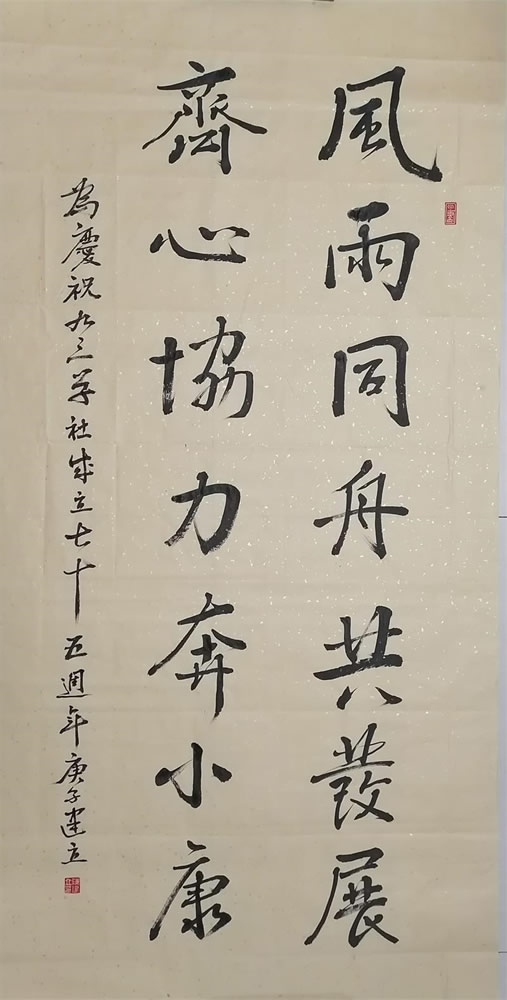 風雨同舟共發展
齊心協力奔小康
為慶祝九三学社成立七十五週年庚子建立